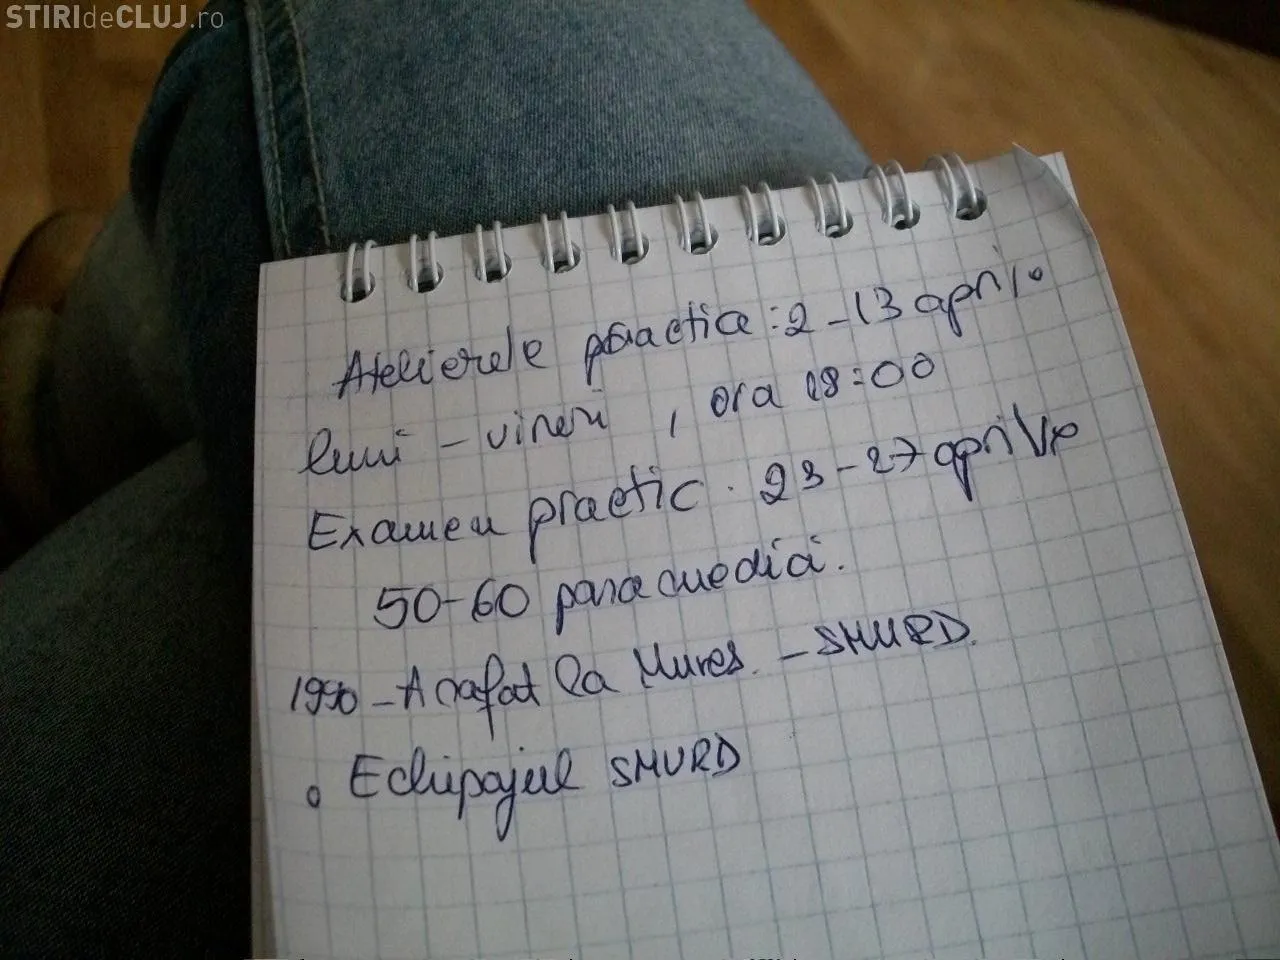 STIRIdeCLUJ.ro
Atelierele practice : 2 - 13 aprilie
luni - vineri , ora 18:00
Examen practic . 23 - 27 aprilie
50-60 paramedici.
1990 - Arafat la Mures. - SMURD.
o Echipajul SMURD